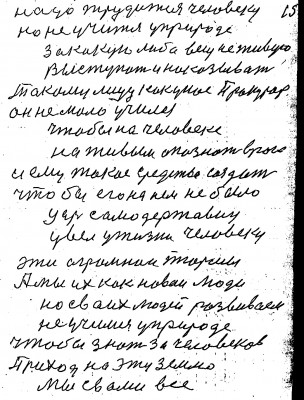 надо трудится человеку 15
но не учится у природе
за какую либо вещ не живую
выступат и наказыват
такому лицу как уже прокурор
он не мало училея
чтобы на человеке
на живым опознат врага
и ему такое средство создат
что бы его на нем не было
удр самодержавиу
увел у жизни человеку
эти огромнои теории
А мы их как новаи люди
но сваих людей развиваем
не учимся у природе
чтобы знат за человеков
Приход на эту землю
мы с вами все